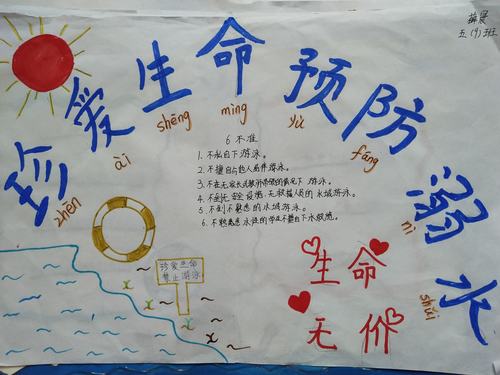 珍爱生命预防溺水
zhēn ài shēng mìng yù fáng nì shuǐ
五(9)班
6不准
1. 不私自下游泳。
2. 不擅自与他人结伴游泳。
3. 不在无家长或教师带领的情况下游泳。
4. 不到无安全设施、无救援人员的水域游泳。
5. 不到不熟悉的水域游泳。
6. 不熟悉水性的学生不擅自下水施救。
珍爱生命
禁止游泳
生命
无价